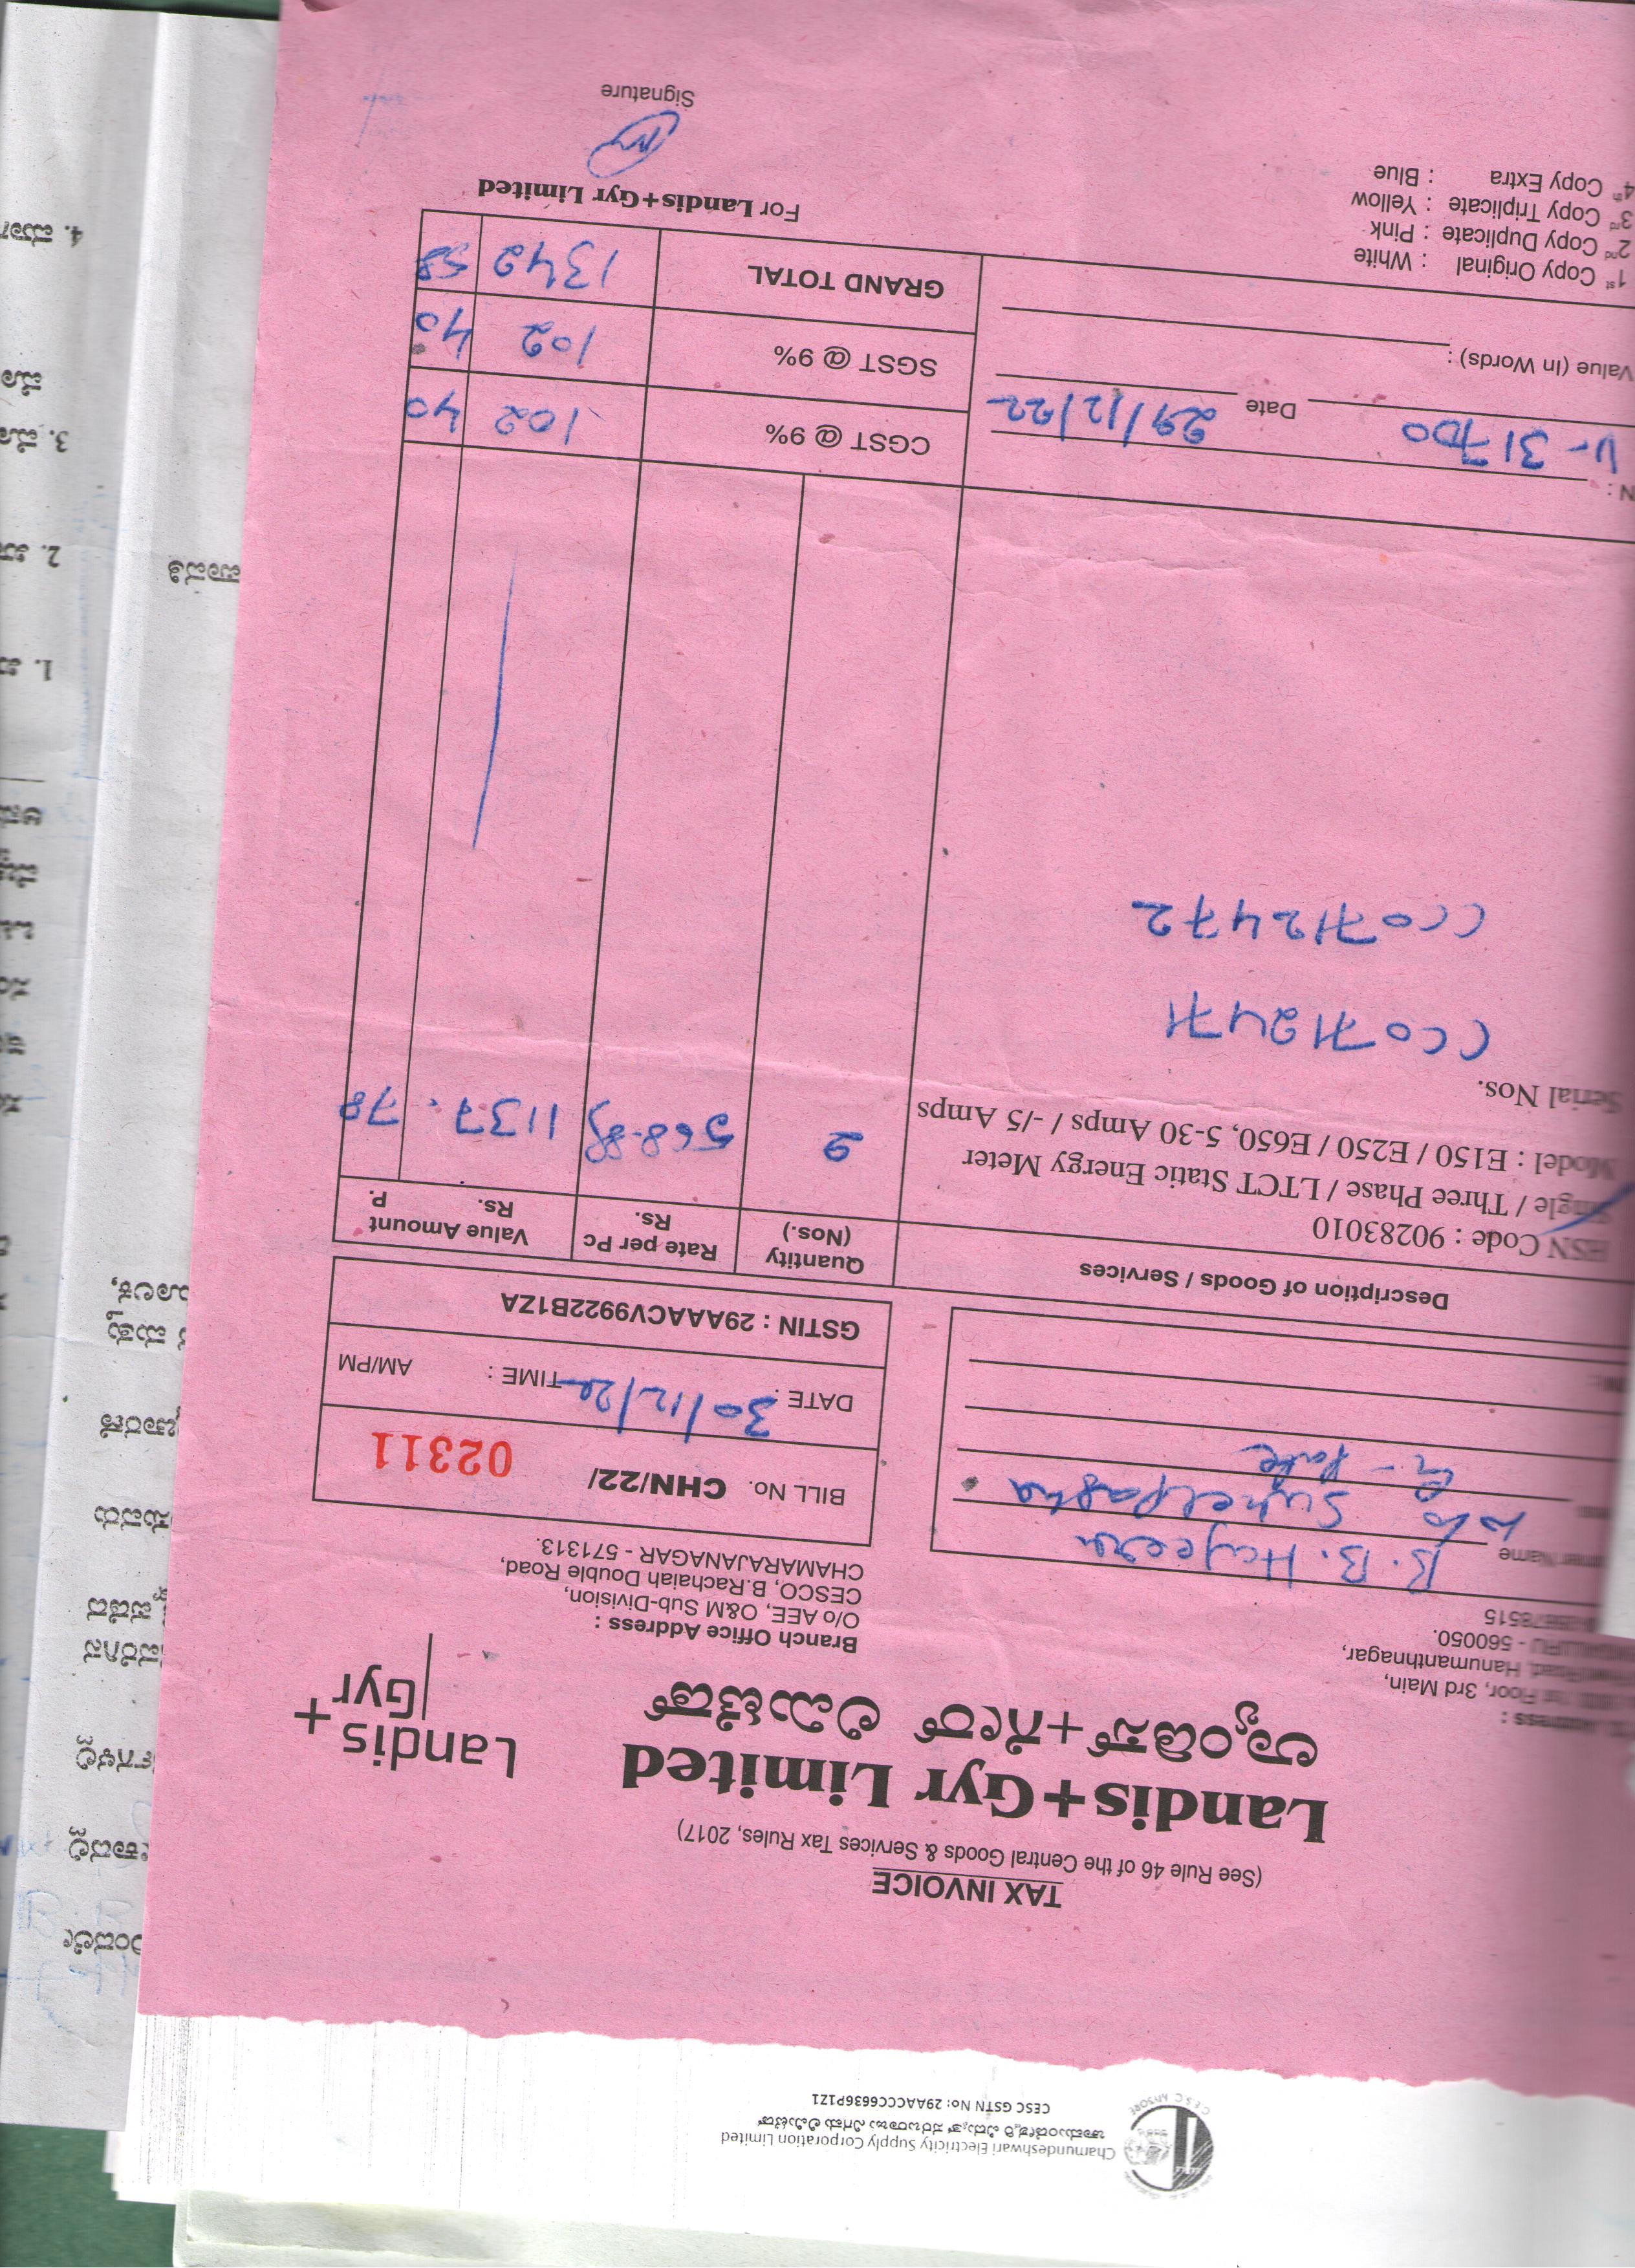 Chamundeshwari Electricity Supply Corporation Limited
ಚಾಮುಂಡೇಶ್ವರಿ ವಿದ್ಯುತ್ ಸರಬರಾಜು ನಿಗಮ ಲಿಮಿಟೆಡ್
CESC GSTN No: 29AACCC6636P1Z1
TAX INVOICE
(See Rule 46 of the Central Goods & Services Tax Rules, 2017)
Landis+Gyr Limited
ಲ್ಯಾಂಡಿಸ್+ಗೇರ್ ಲಿಮಿಟೆಡ್
Landis+
Gyr
Floor, 3rd Main,
Road, Hanumanthnagar,
- 560050.
Branch Office Address :
O/o AEE, O&M Sub-Division,
CESCO, B.Rachaiah Double Road,
CHAMARAJANAGAR - 571313.
Name B. B. Hajeera
Suhelpasha
BILL No. CHN/22/ 02311
DATE : 30/12/22 TIME : AM/PM
GSTIN : 29AAACV9922B1ZA
Description of Goods / Services
Quantity (Nos.)
Rate per Pc Rs.
Value Amount Rs. P.
HSN Code : 90283010
Single / Three Phase / LTCT Static Energy Meter
Model : E150 / E250 / E650, 5-30 Amps / -/5 Amps
2 568.89 1137. 78
Serial Nos.
CC0712471
CC0712472
31700 Date 29/12/22
CGST @ 9% 102 40
SGST @ 9% 102 40
GRAND TOTAL 1342 58
Value (In Words) :
1st Copy Original : White
2nd Copy Duplicate : Pink
3rd Copy Triplicate : Yellow
4th Copy Extra : Blue
For Landis+Gyr Limited
Signature